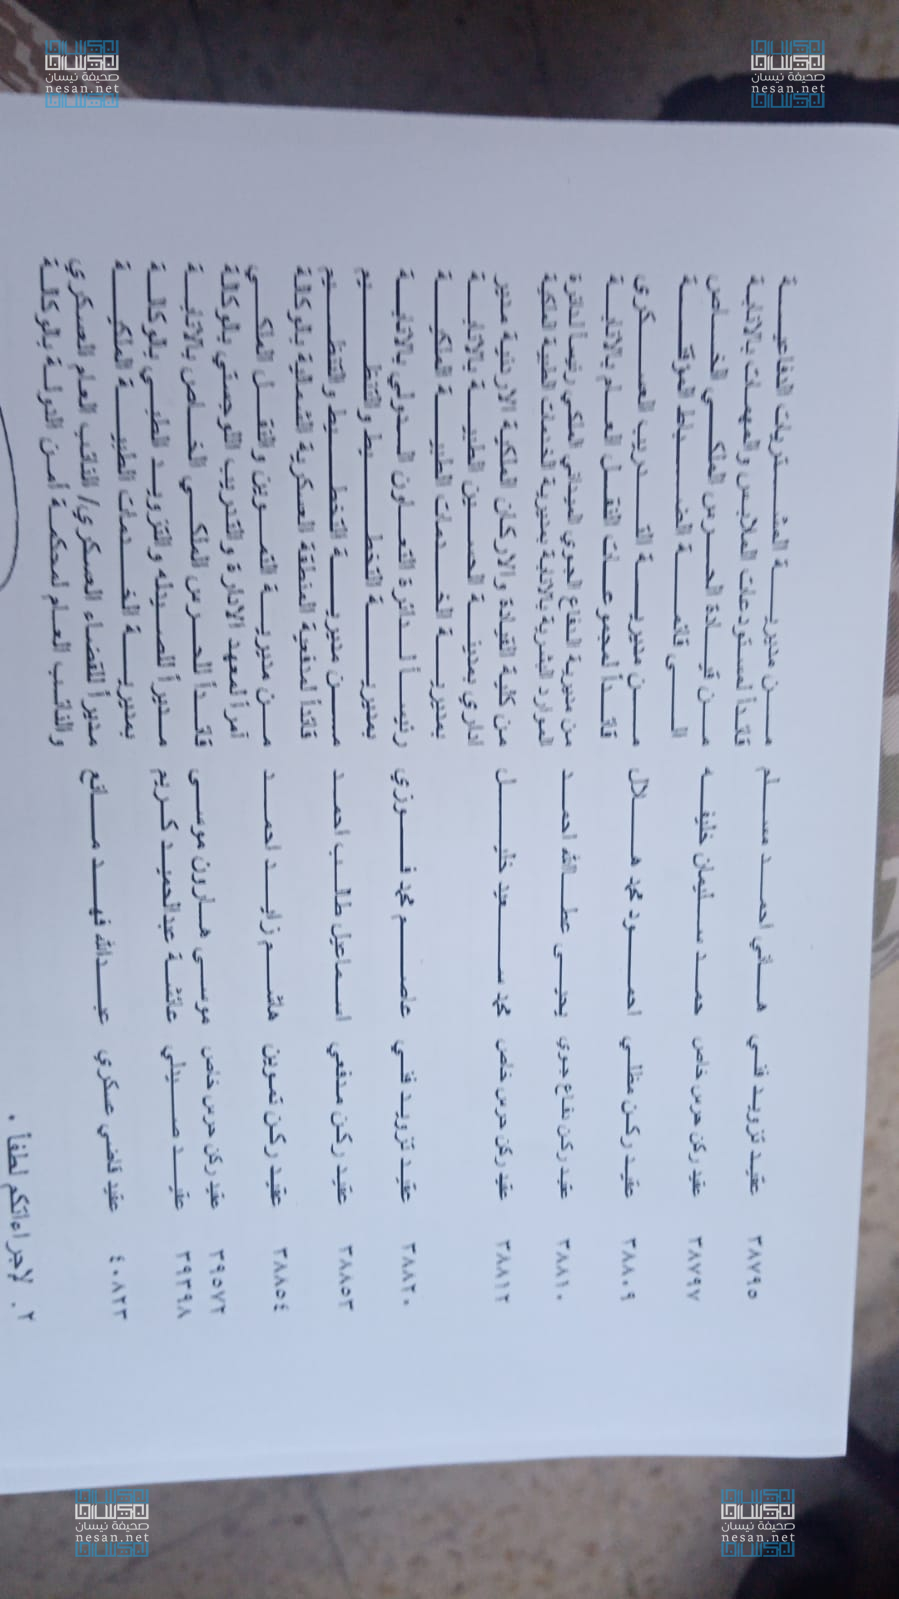 ٣٨٧٩٥ عقيد تزويد فني هاني احمد مسلم من مديرية المشتريات الدفاعية
قائداً لمستودعات الملابس والمهمات بالاتابة
٣٨٧٩٧ عقيد ركن حرس خاص حمد سليمان خليفه من قيادة الحرس الملكي الخاص
الى قائمة الضباط المؤقتة
٣٨٨٠٩ عقيد ركن مظلي احمد محمود هلال من مديرية التدريب العسكري
قائداً لمجموعات النقل العام بالاتابة
٣٨٨١٠ عقيد ركن دفاع جوي يحيى عطاالله احمد من مديرية الدفاع الجوي الميداني الملكي رئيساً لدائرة
الموارد البشرية بالاتابة بمديرية الخدمات الطبية الملكية
٣٨٨١٢ عقيد ركن حرس خاص محمد سعيد خليل من كلية القيادة والاركان الملكية الاردنية مدير
اداري بمدينة الحسين الطبية بالاتابة
بمديرية الخدمات الطبية الملكية
٣٨٨٢٠ عقيد تزويد فني عاصم محمد فوزي رئيساً لدائرة التعاون الدولي بالاتابة
بمديرية التخطيط والتنظيم
٣٨٨٥٣ عقيد ركن مدفعي اسماعيل طالب احمد من مديرية التخطيط والتنظيم
قائداً لمدفعية المنطقة العسكرية الشمالية بالوكالة
٣٨٨٥٤ عقيد ركن تموين هاشم زايد احمد من مديرية التموين والنقل الملكي
آمراً لمعهد الادارة والتدريب اللوجستي بالوكالة
٣٩٥٧٢ عقيد ركن حرس خاص موسى هارون موسى قائداً للحرس الملكي الخاص بالاتابة
٣٩٣٩٨ عقيد صيدلي عائشة عبدالحميد كريم مديراً للصيدله والتزويد الطبي بالوكالة
بمديرية الخدمات الطبية الملكية
٤٠٨٢٣ عقيد قاضي عسكري عبدالله فهد مانع مديراً للقضاء العسكري/ النائب العام العسكري
والنائب العام لمحكمة أمن الدولة بالوكالة
٢. لإجراءاتكم لطفاً .
صحيفة نيسان
nesan.net
صحيفة نيسان
nesan.net
صحيفة نيسان
nesan.net
صحيفة نيسان
nesan.net